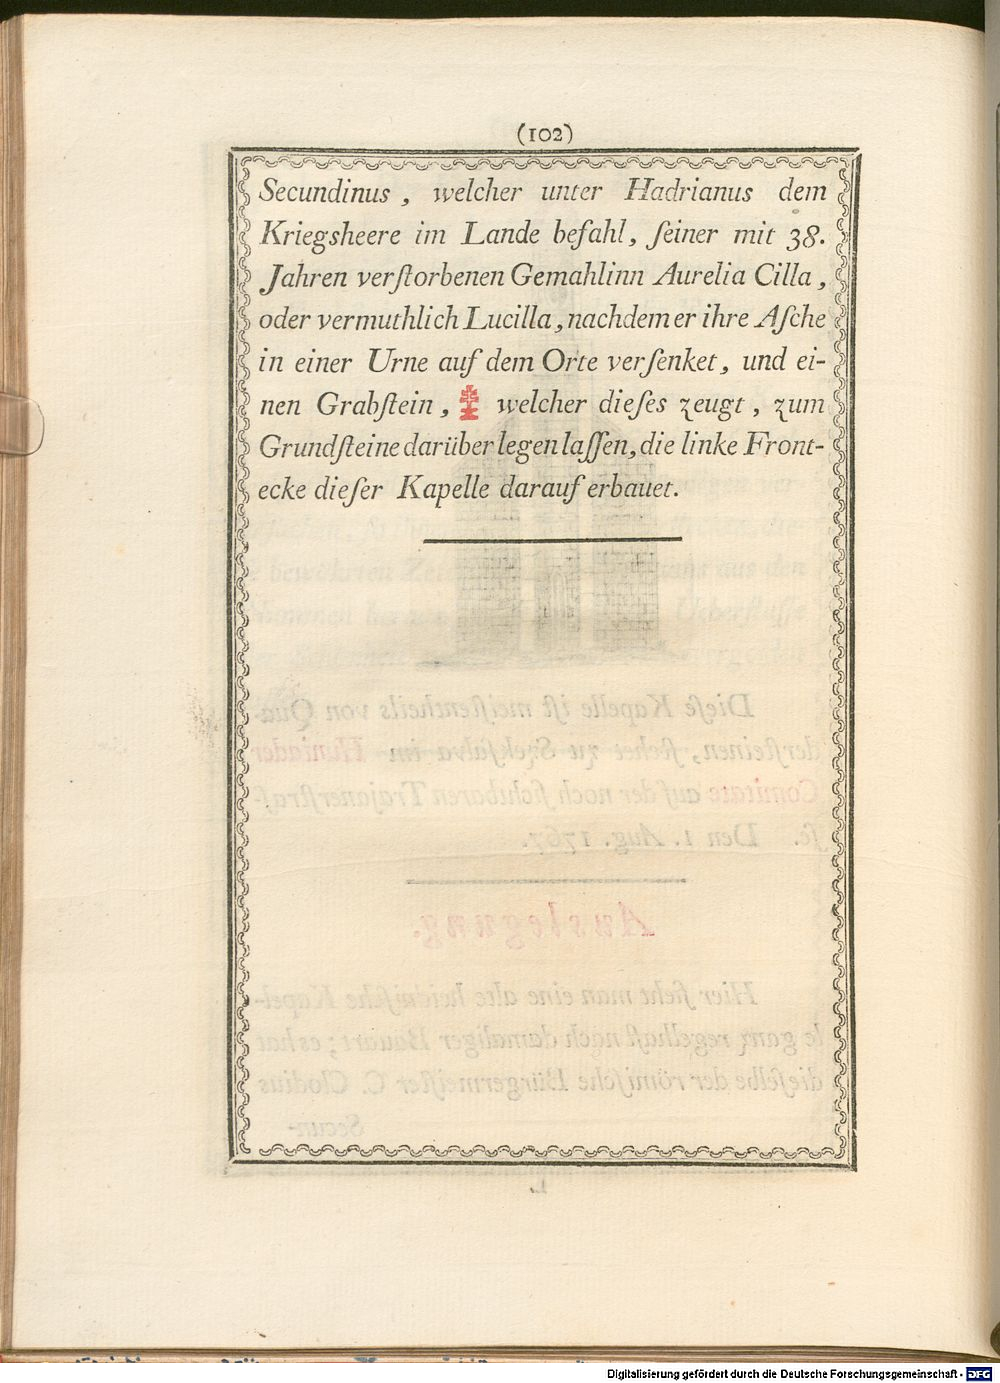 (102)
Secundinus, welcher unter Hadrianus dem
Kriegsheere im Lande befahl, ſeiner mit 38.
Jahren verſtorbenen Gemahlinn Aurelia Cilla,
oder vermuthlich Lucilla, nachdem er ihre Aſche
in einer Urne auf dem Orte verſenket, und ei-
nen Grabſtein, welcher dieſes zeugt, zum
Grundſteine darüber legen laſſen, die linke Front-
ecke dieſer Kapelle darauf erbauet.
Digitalisierung gefördert durch die Deutsche Forschungsgemeinschaft - DFG